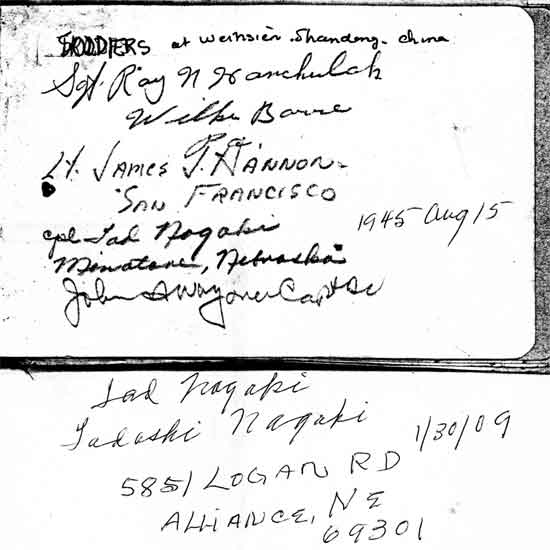 SOLDIERS at Weihsien Shandong. China
Sgt. Ray N Hanchulak
Wilkes Barre
Pa.
Lt. JAMES J. HANNON
SAN FRANCISCO
cpl Tad Nagaki
1945 Aug 15
Minatare, Nebraska
John Wagoner Capt
Tad Nagaki
Tadashi Nagaki
1/30/09
5851 LOGAN RD
ALLIANCE, NE
69301